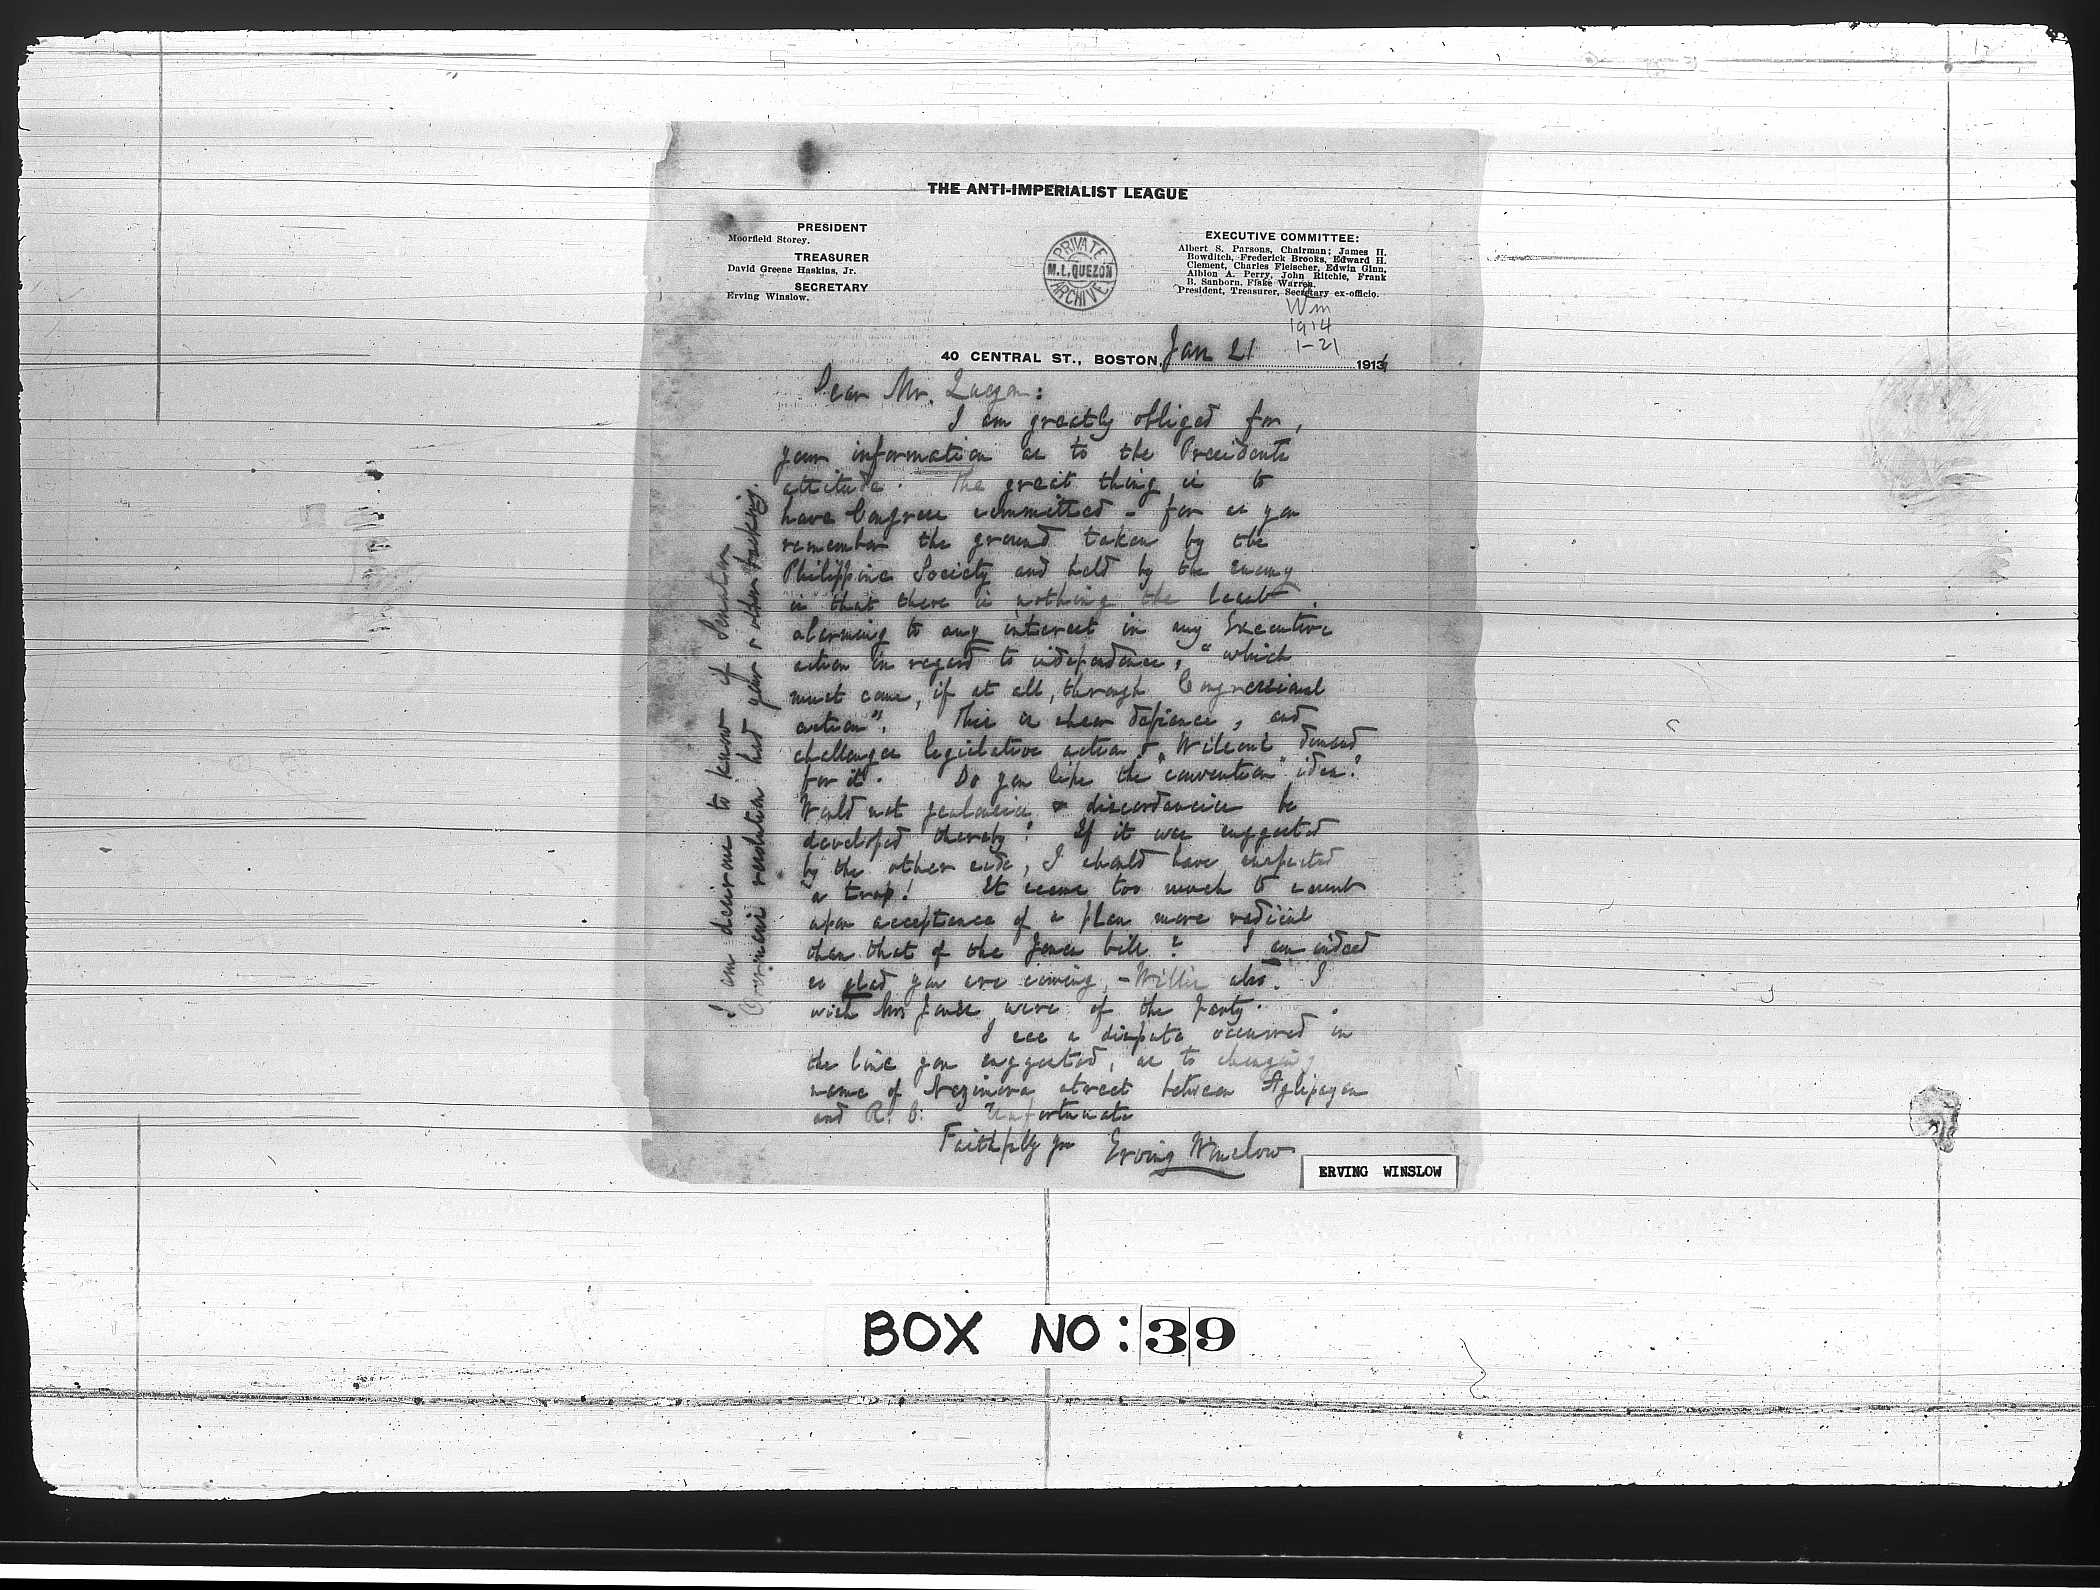 THE ANTI-IMPERIALIST LEAGUE
PRESIDENT
Moorfield Storey.
TREASURER
David Greene Haskins, Jr.
SECRETARY
Erving Winslow.
PRIVATE
M.L. QUEZON
ARCHIVE
EXECUTIVE COMMITTEE:
Albert S. Parsons, Chairman; James H.
Bowditch, Frederick Brooks, Edward H.
Clement, Charles Fleischer, Edwin Ginn,
Albion A. Perry, John Ritchie, Frank
B. Sanborn, Fiske Warren,
President, Treasurer, Secretary ex-officio.
1914
1-21
40 CENTRAL ST., BOSTON, Jan 21 1914
Dear Mr. Quezon:
I am greatly obliged for
your information as to the Presidents
attitude. The great thing is to
have Congress committed - for as you
remember the ground taken by the
Philippine Society and held by the enemy
is that there is nothing the least
alarming to any interest in any Executive
action in regard to independence, "which
must come, if at all, through Congressional
action". This is sheer defiance, and
challenges legislative action & Wilson's demand
for it. Do you like the "convention" idea?
Would not jealousies & discordancies be
developed thereby? If it was suggested
by the other side, I should have suspected
a trap! It seems too much to count
upon acceptance of a plan more radical
than that of the Jones bill? I am indeed
so glad you are coming, - Willis also. I
wish Mrs Jones were of the party.
I see a dispute occurred in
the line you suggested, as to changing
name of street between Aglipayan
and R. C. Unfortunate
Faithfully yrs Erving Winslow
I am desirous to know if Senator
resolution had your or other backing.
ERVING WINSLOW
BOX NO: 39